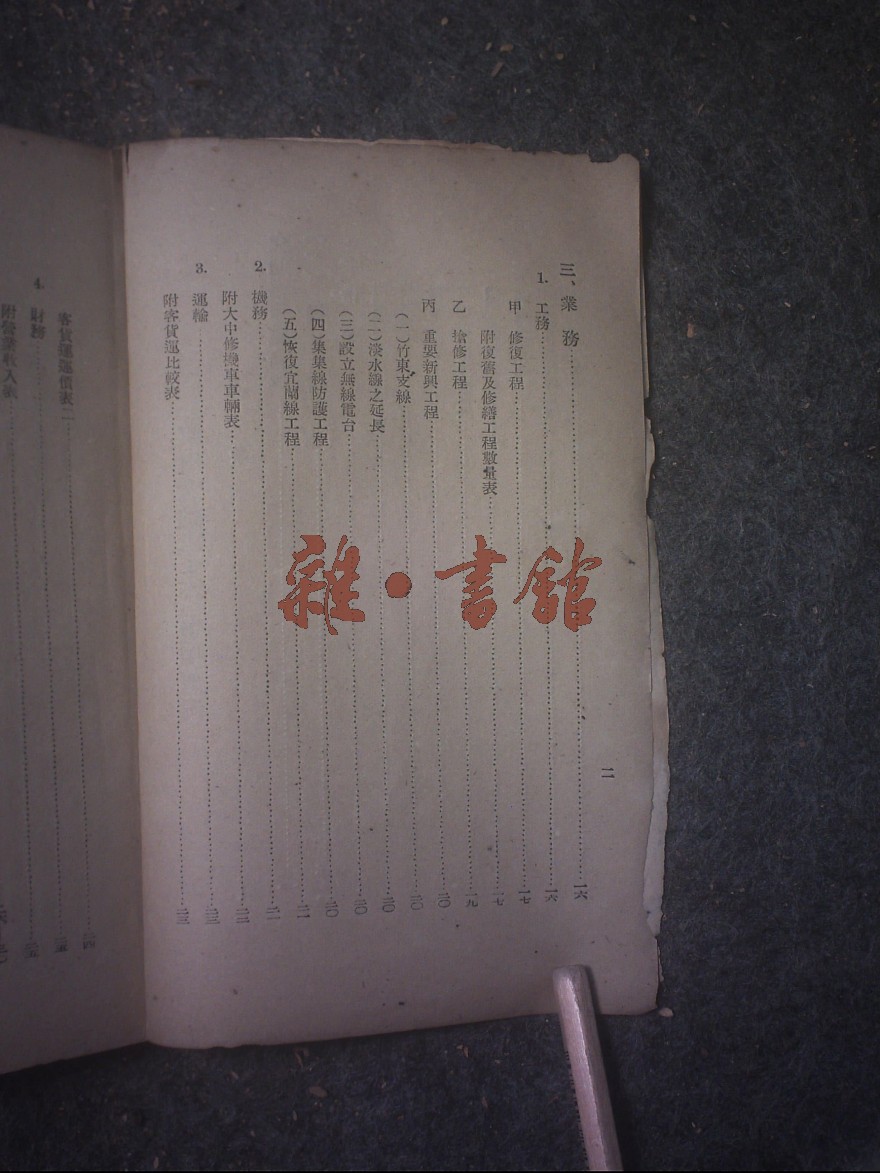 二
三、業務……一六
1. 工務……一六
甲 修復工程……一七
附復舊及修繕工程數量表……一七
乙 搶修工程……一九
丙 重要新興工程……二〇
(一)竹東支線……二〇
(二)淡水線之延長……二〇
(三)設立無線電台……二〇
(四)集集線防護工程……二〇
(五)恢復宜蘭線工程……二一
2. 機務……二一
附大中修機車車輛表……二二
3. 運輸……二三
附客貨運比較表……二三
客貨運運價表……二四
4. 財務……二五
雜·書館